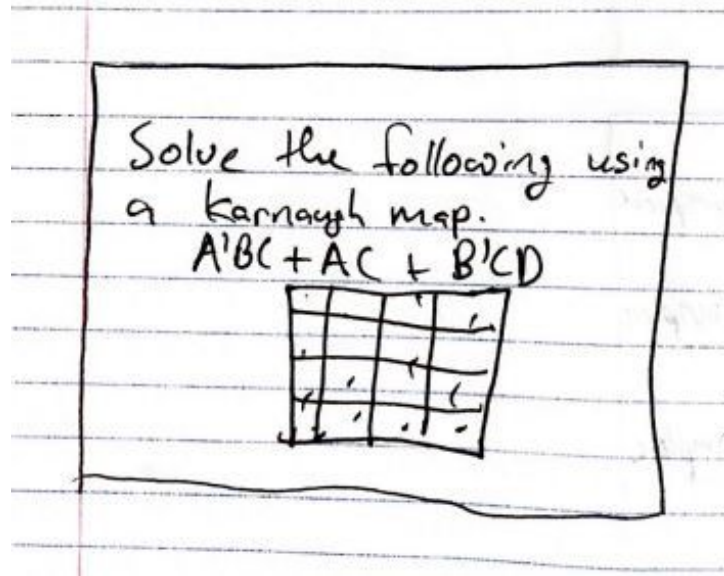 Solve the following using
a Karnaugh map.
A'BC + AC + B'CD